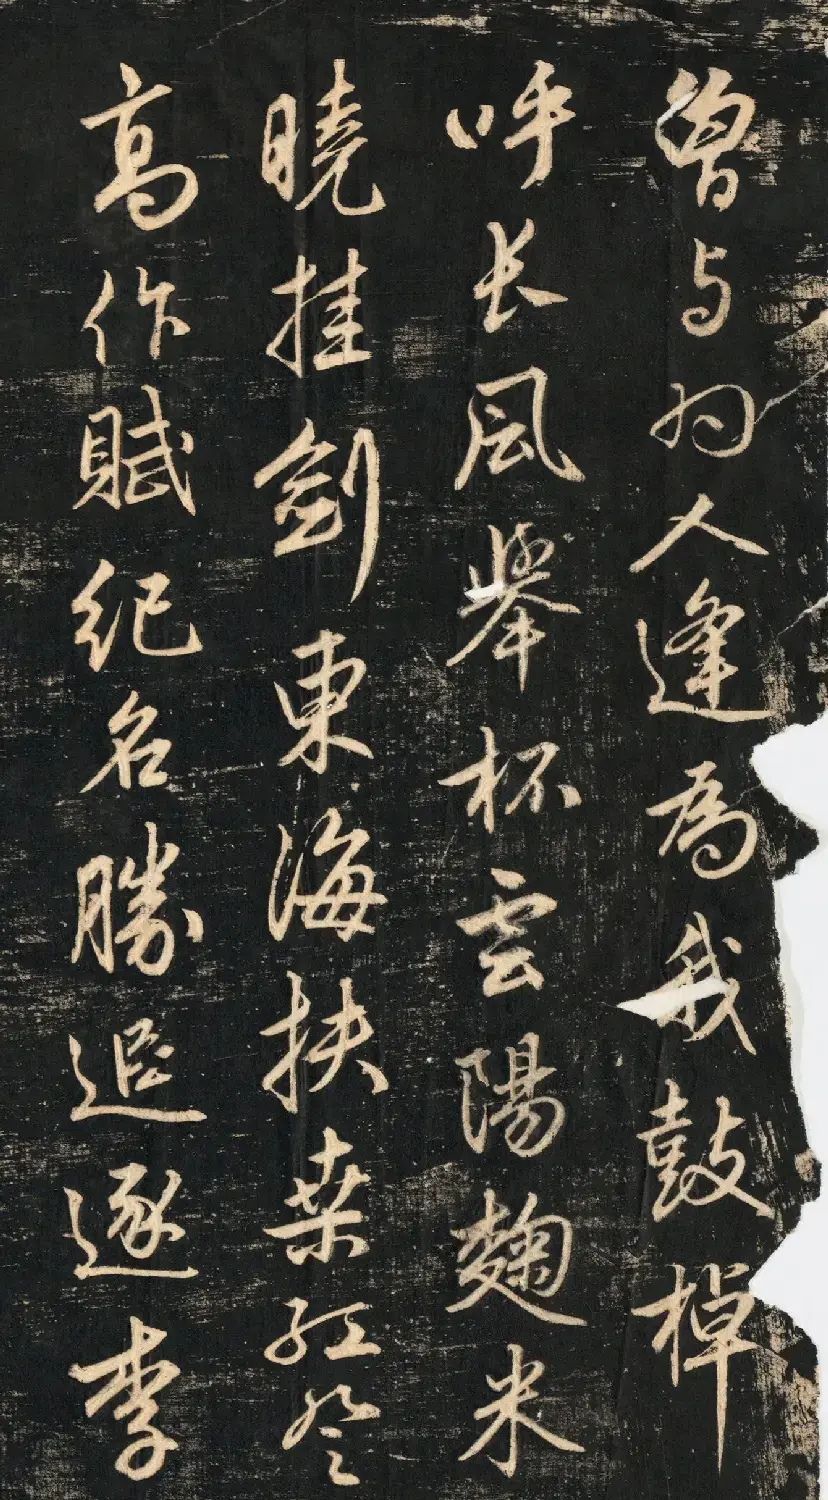 曾与羽人逢為我鼓棹
呼长風舉杯雲陽麴米
曉挂劍東海扶桑紅登
高作賦紀名勝追逐李